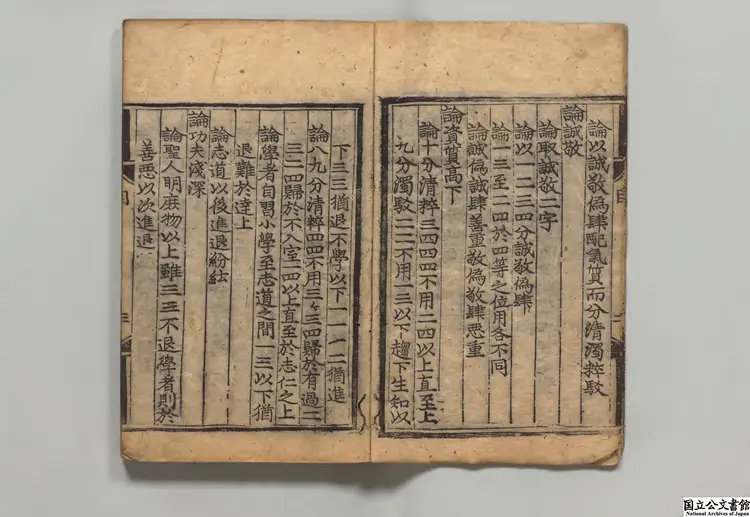 論以誠敬偽肆配氣質而分清濁粹駁
論誠敬
論取誠敬二字
論以一二三四分誠敬偽肆
論一三至二四於四等之位用各不同
論誠偽誠肆善重敬偽敬肆悪重
論資質高下
論十分清粹三四四四不用二四以上直至上
九分濁駁二二不用一三以下趨下生知以
下三三猶退不學以下一一一二猶進
論八九分清粹四四不用三々三四歸於有過二
三二四歸於不入室二四以上直至於志仁之上
論學者自習小學至志道之間一三以下猶
退難於逹上
論志道以後進退紛紜
論功夫淺深
論聖人明庶物以上雖三三不退學者則於
善悪以次進退
国立公文書館
National Archives of Japan